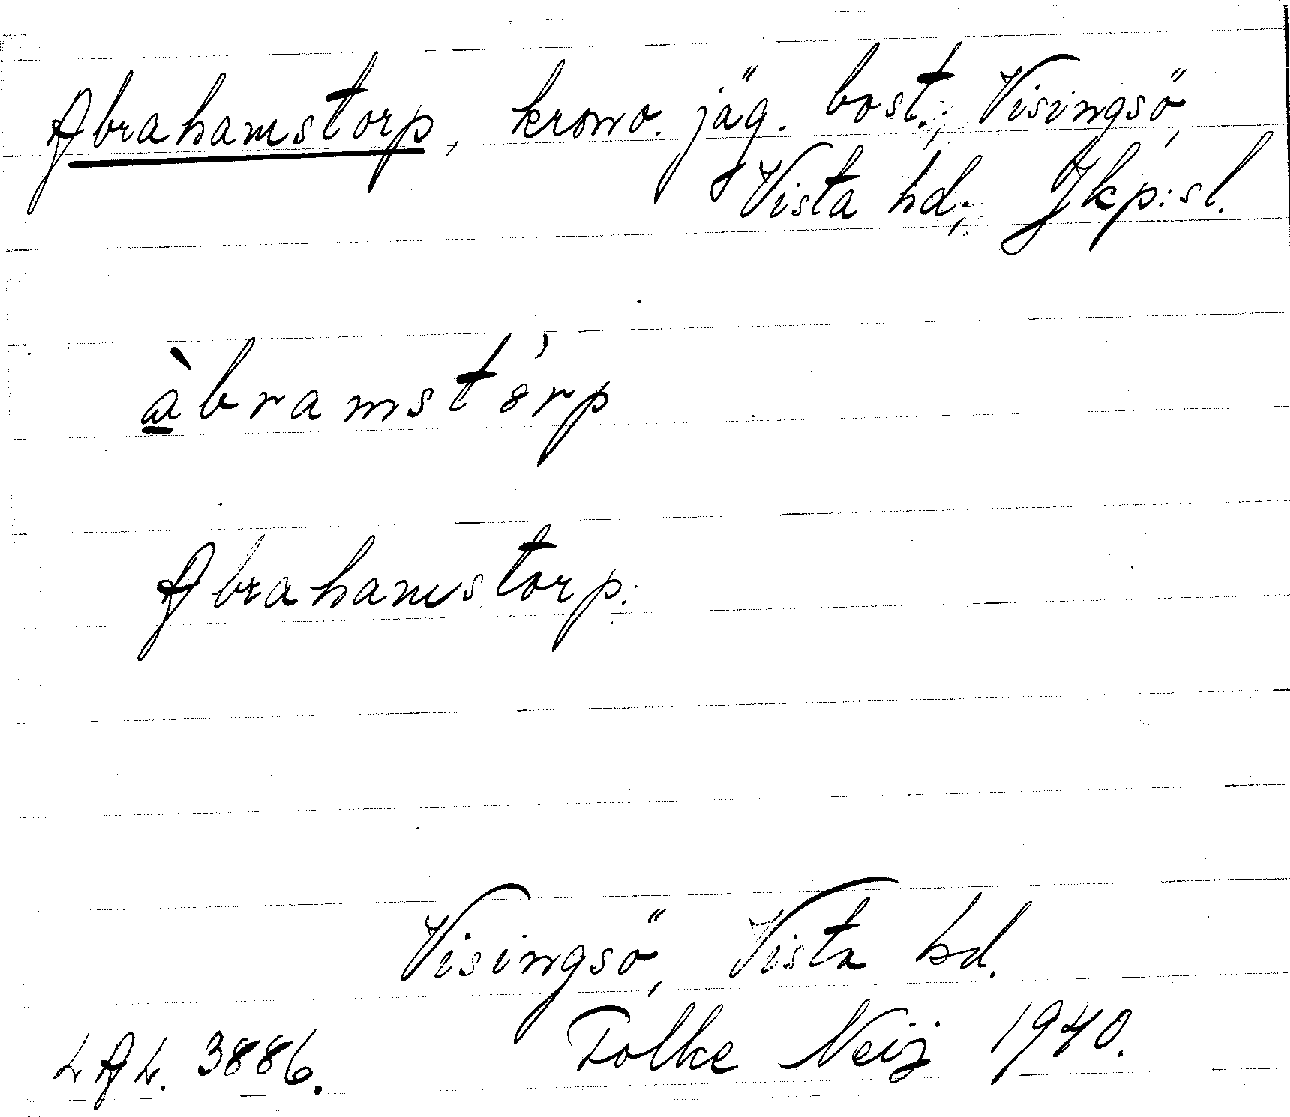 Abrahamstorp, krono. jäg. bost.; Visingsö,
Vista hd; Jkp:sl.
àbramstórp
Abrahamstorp.
Visingsö, Vista hd.
L.A.L. 3886. Folke Neij 1940.